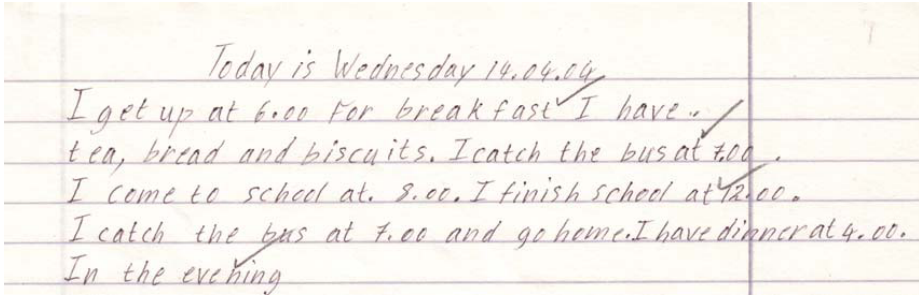 Today is Wednesday 14.04.04
I get up at 6.00 For breakfast I have..
tea, bread and biscuits. I catch the bus at 7.00.
I come to school at. 8.00. I finish school at 12.00.
I catch the bus at 7.00 and go home. I have dinner at 4.00.
In the evening